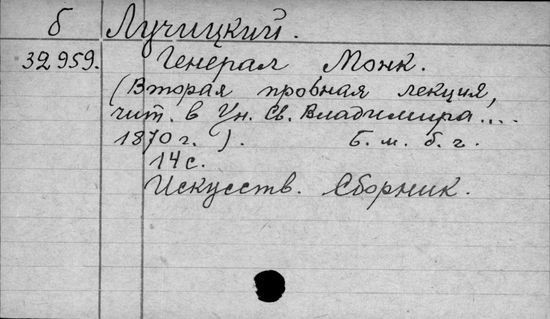 б Лучицкий.
32959. Генерал Монк.
(Вторая пробная лекция,
чит. в Ун. Св. Владимира....
1870 г. ). Б. м. б. г.
14 с.
Искусств. Сборник.